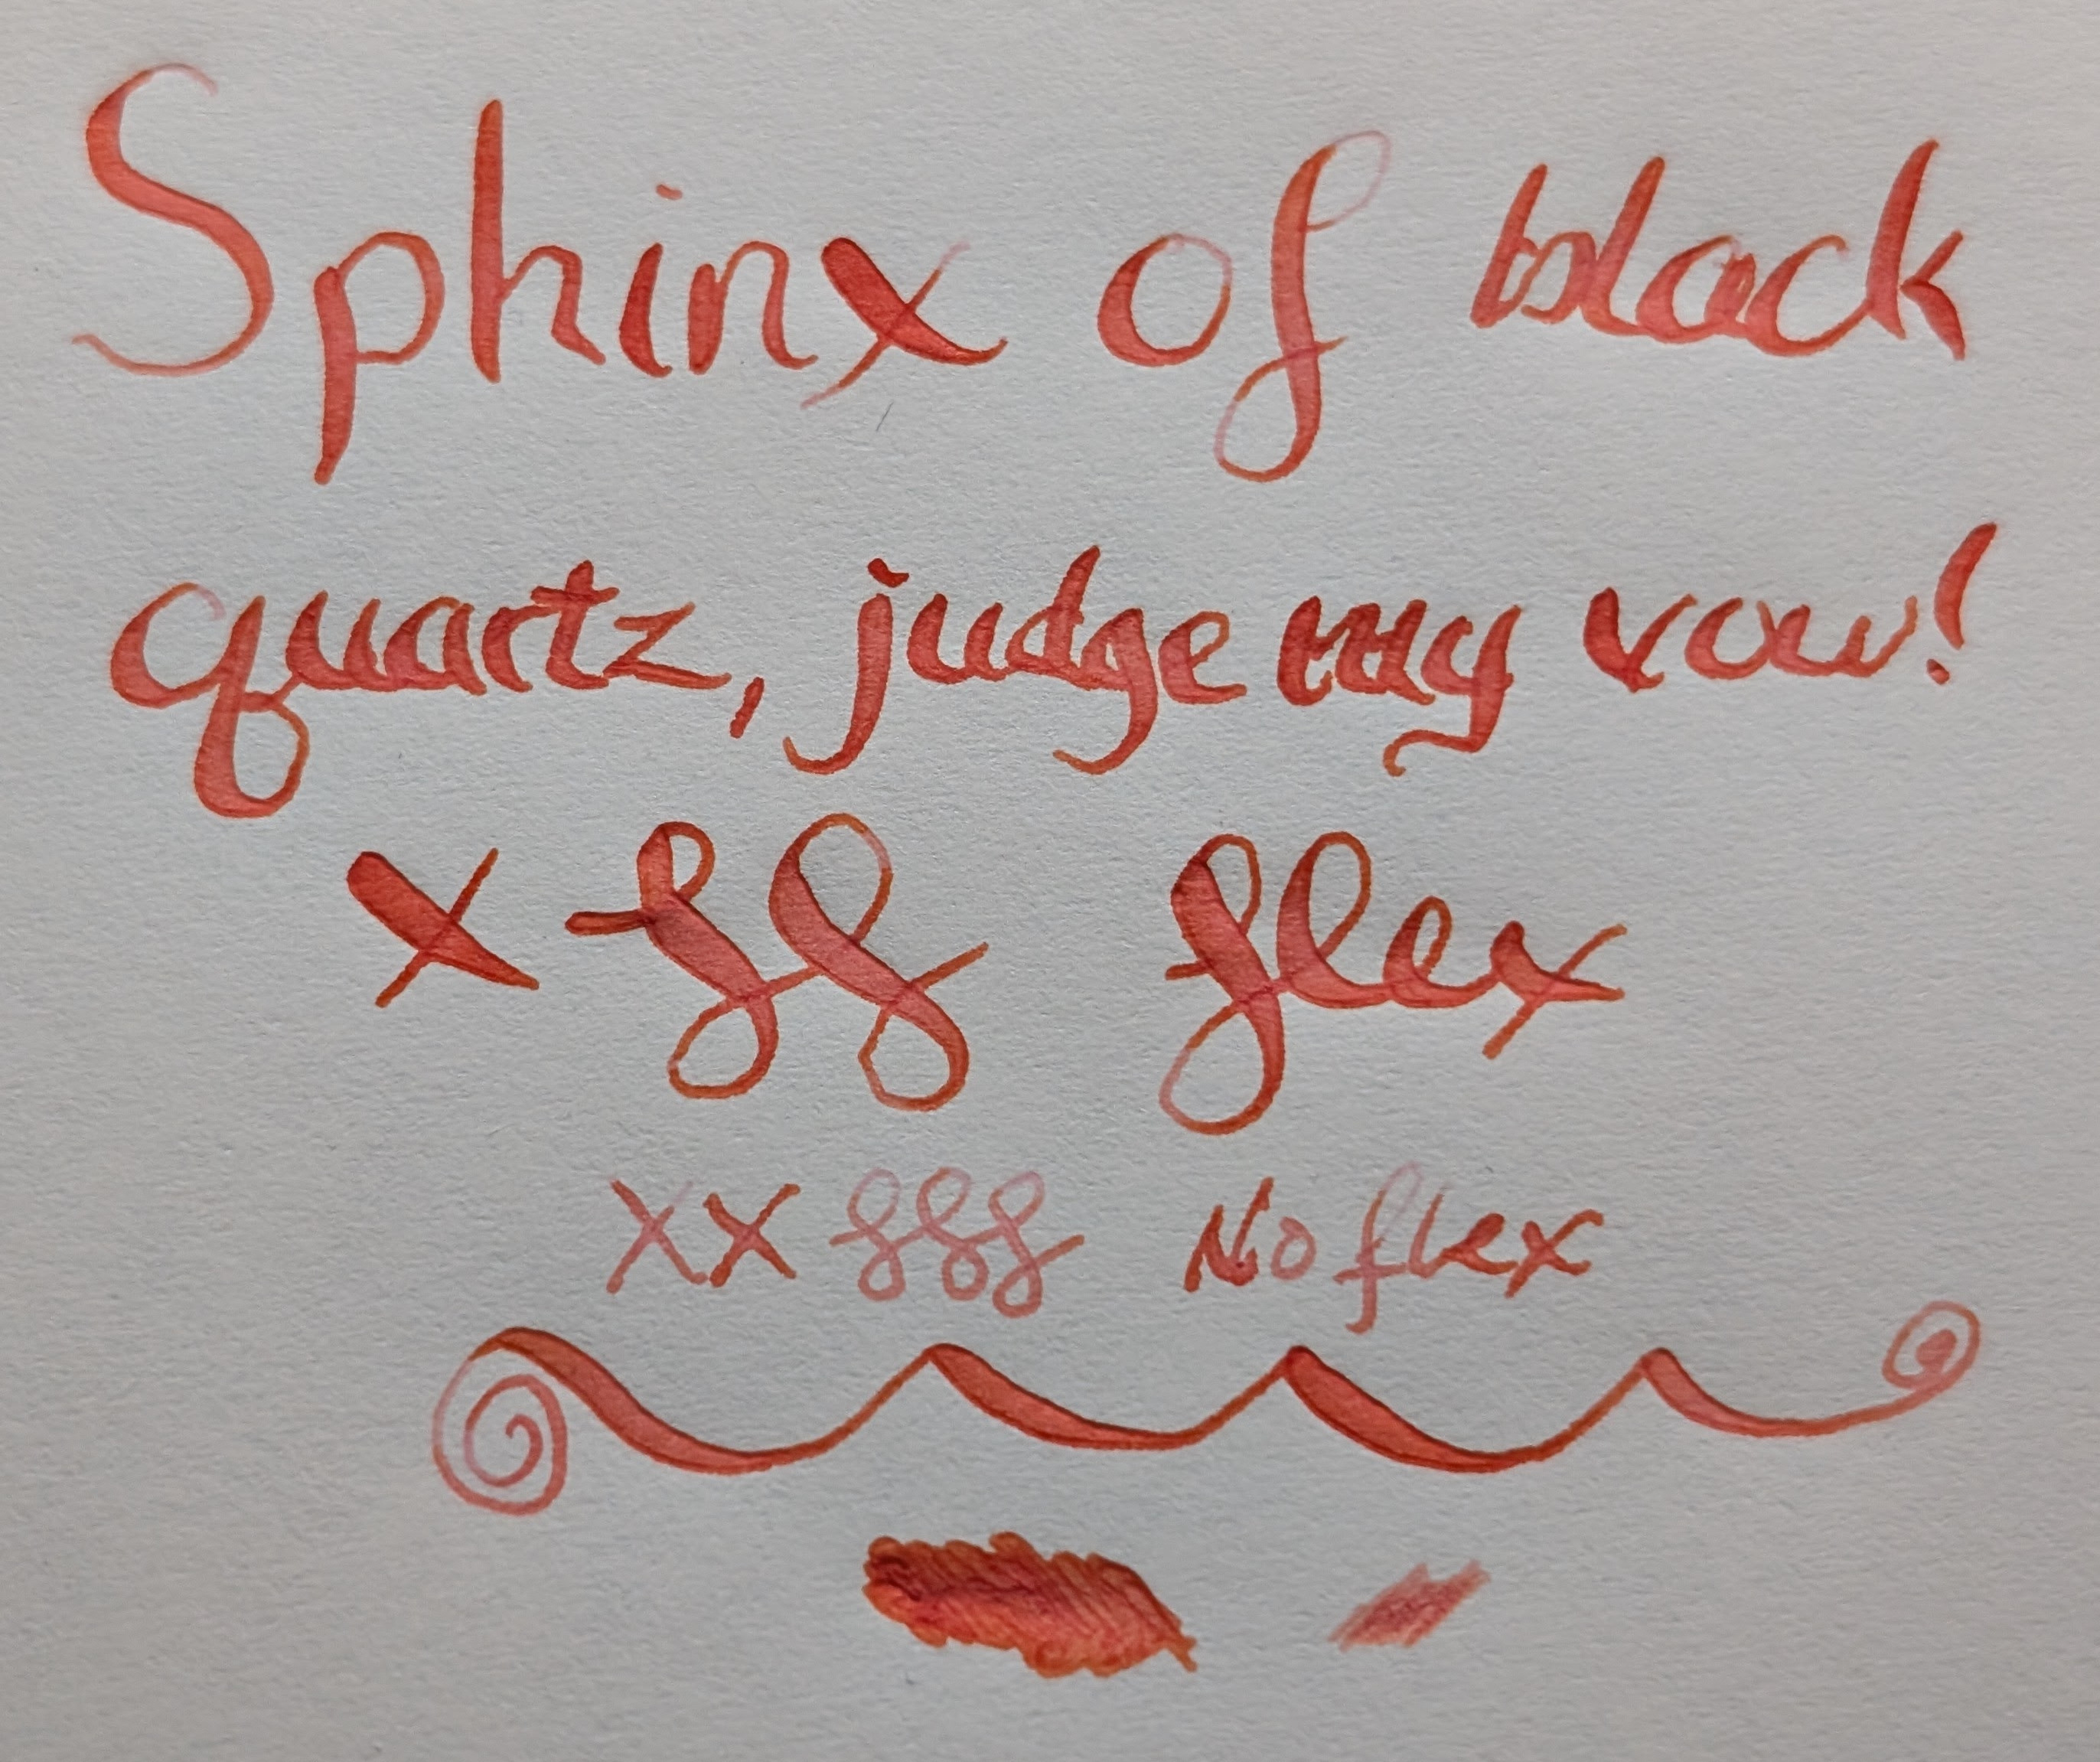 Sphinx of black
quartz, judge my vow!
x ff flex
xx fff No flex